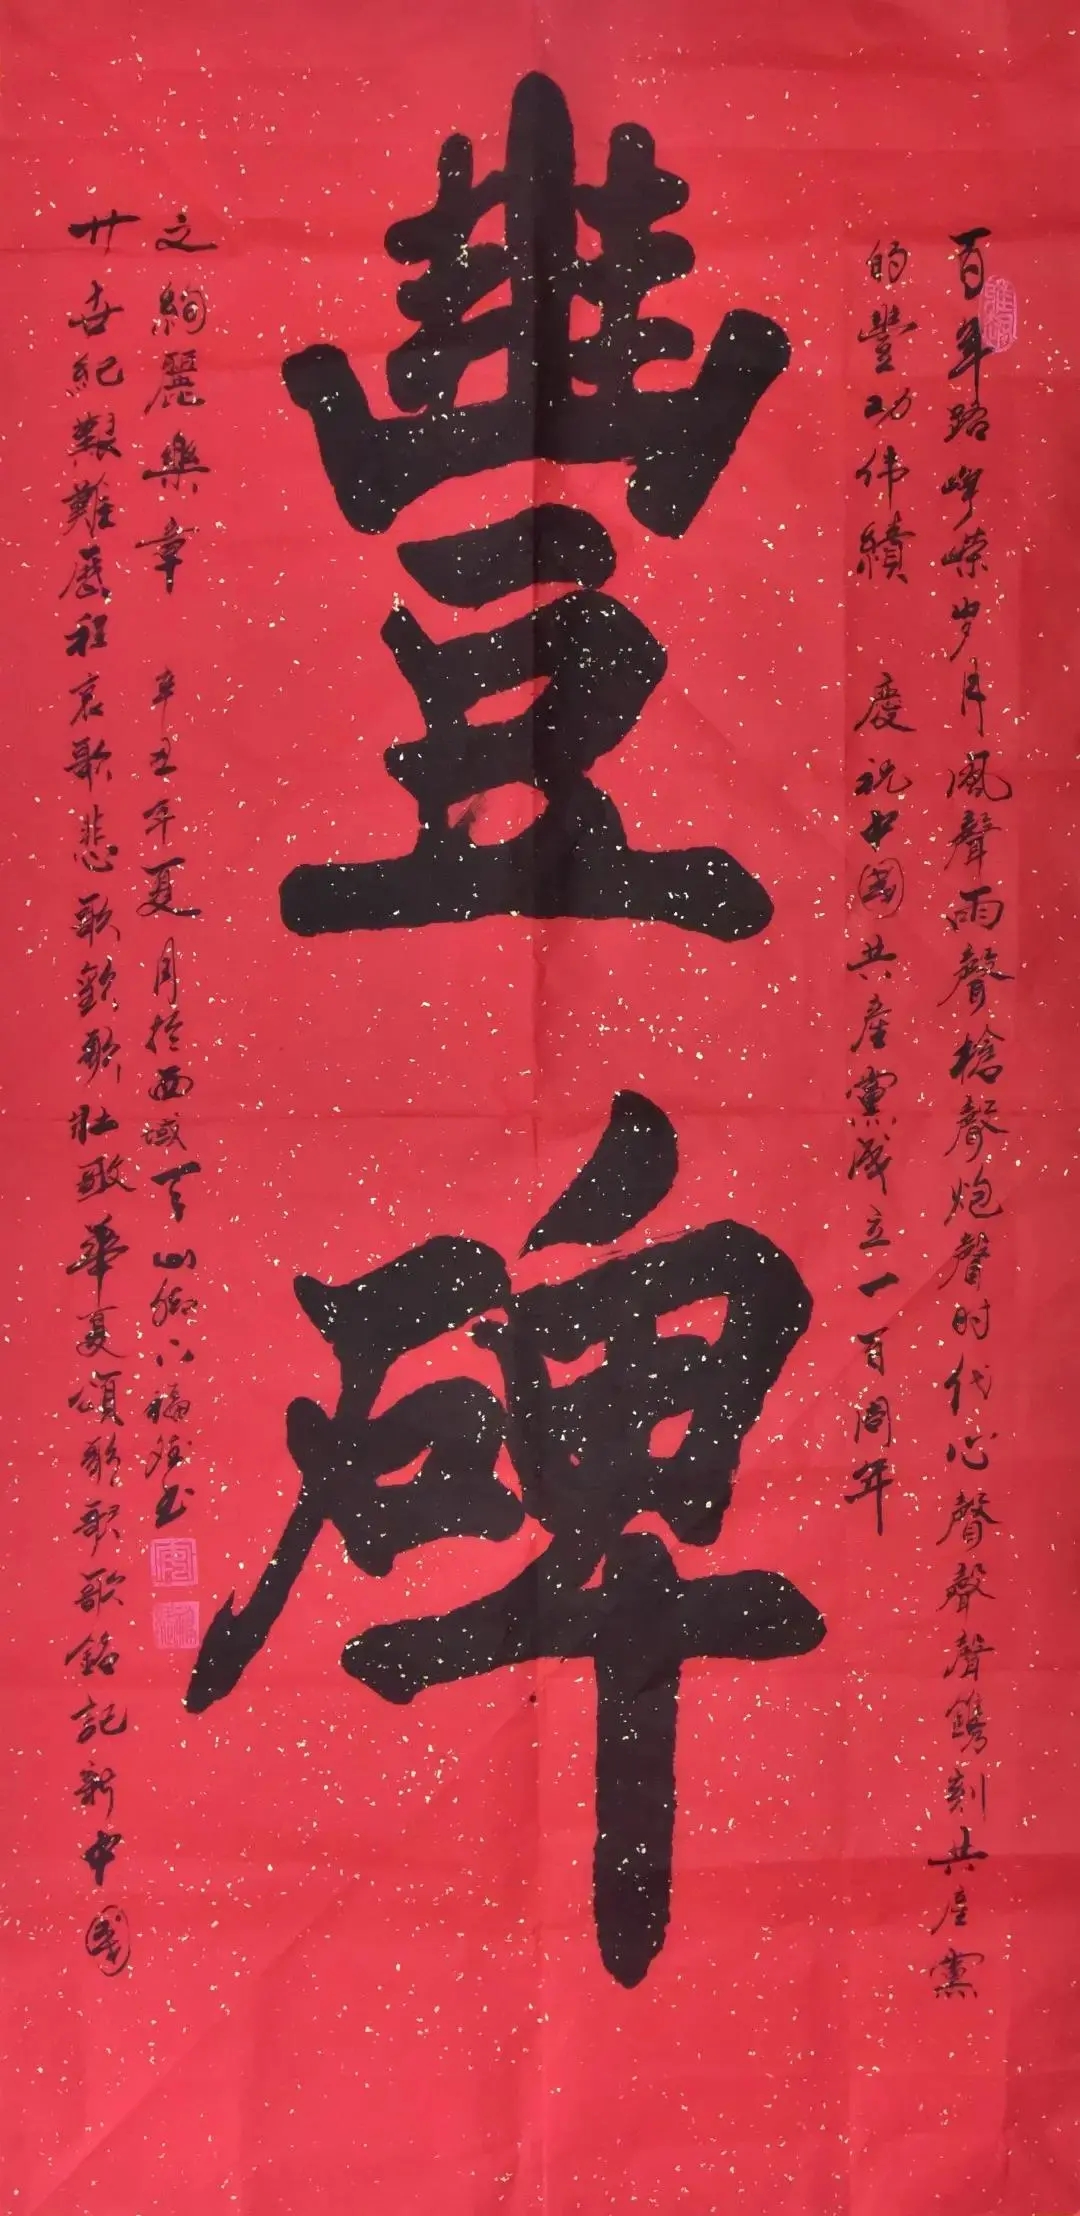 百年路峥嵘岁月風聲雨聲槍聲炮聲时代心聲聲聲鐫刻共産黨
的豐功伟績 慶祝中國共産黨成立一百周年
豐碑
廿世紀艱難歷程哀歌悲歌歡歌壯歌華夏頌歌歌歌銘記新中國
之絢麗樂章 辛丑年夏月於西域天山